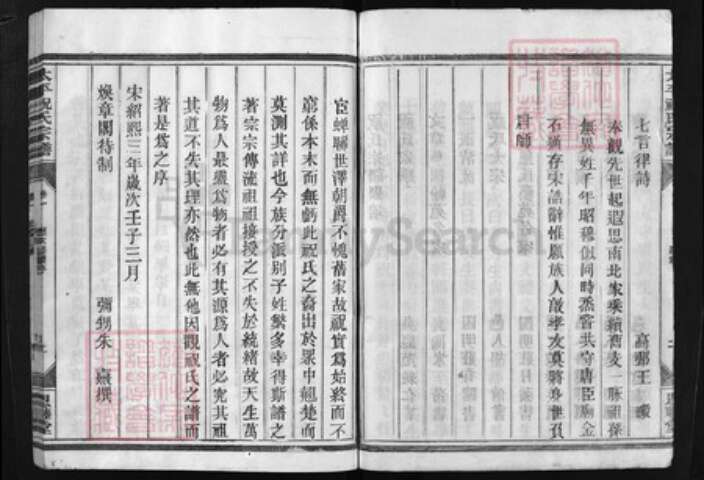 七言律詩
高郵王
奉觀先世起遐思南北家乘續舊支一脈祖孫
無異姓千年昭穆似同時烝嘗共守唐臣廟金
石猶存宋誥辭惟願族人敦孝友莫將身世負
君師
宦蟬聯世澤朝爵不愧舊家故祝實爲始終而不
窮係本末而無虧此祝氏之裔出於眾中翹楚而
莫測其詳也今族分派別子姓繁多幸得斯譜之
著宗宗傳流祖祖接授之不失於統緒故天生萬
物爲人最靈爲物者必有其源爲人者必究其祖
其道不失其理亦然也此無他因觀祝氏之譜而
著是爲之序
宋紹熙三年歲次壬子三月
煥章閣待制
彌甥朱熹撰
太平祝氏宗譜
卷一